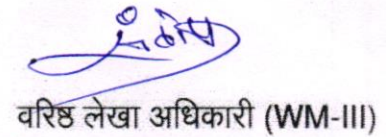 वरिष्ठ लेखा अधिकारी (WM-III)